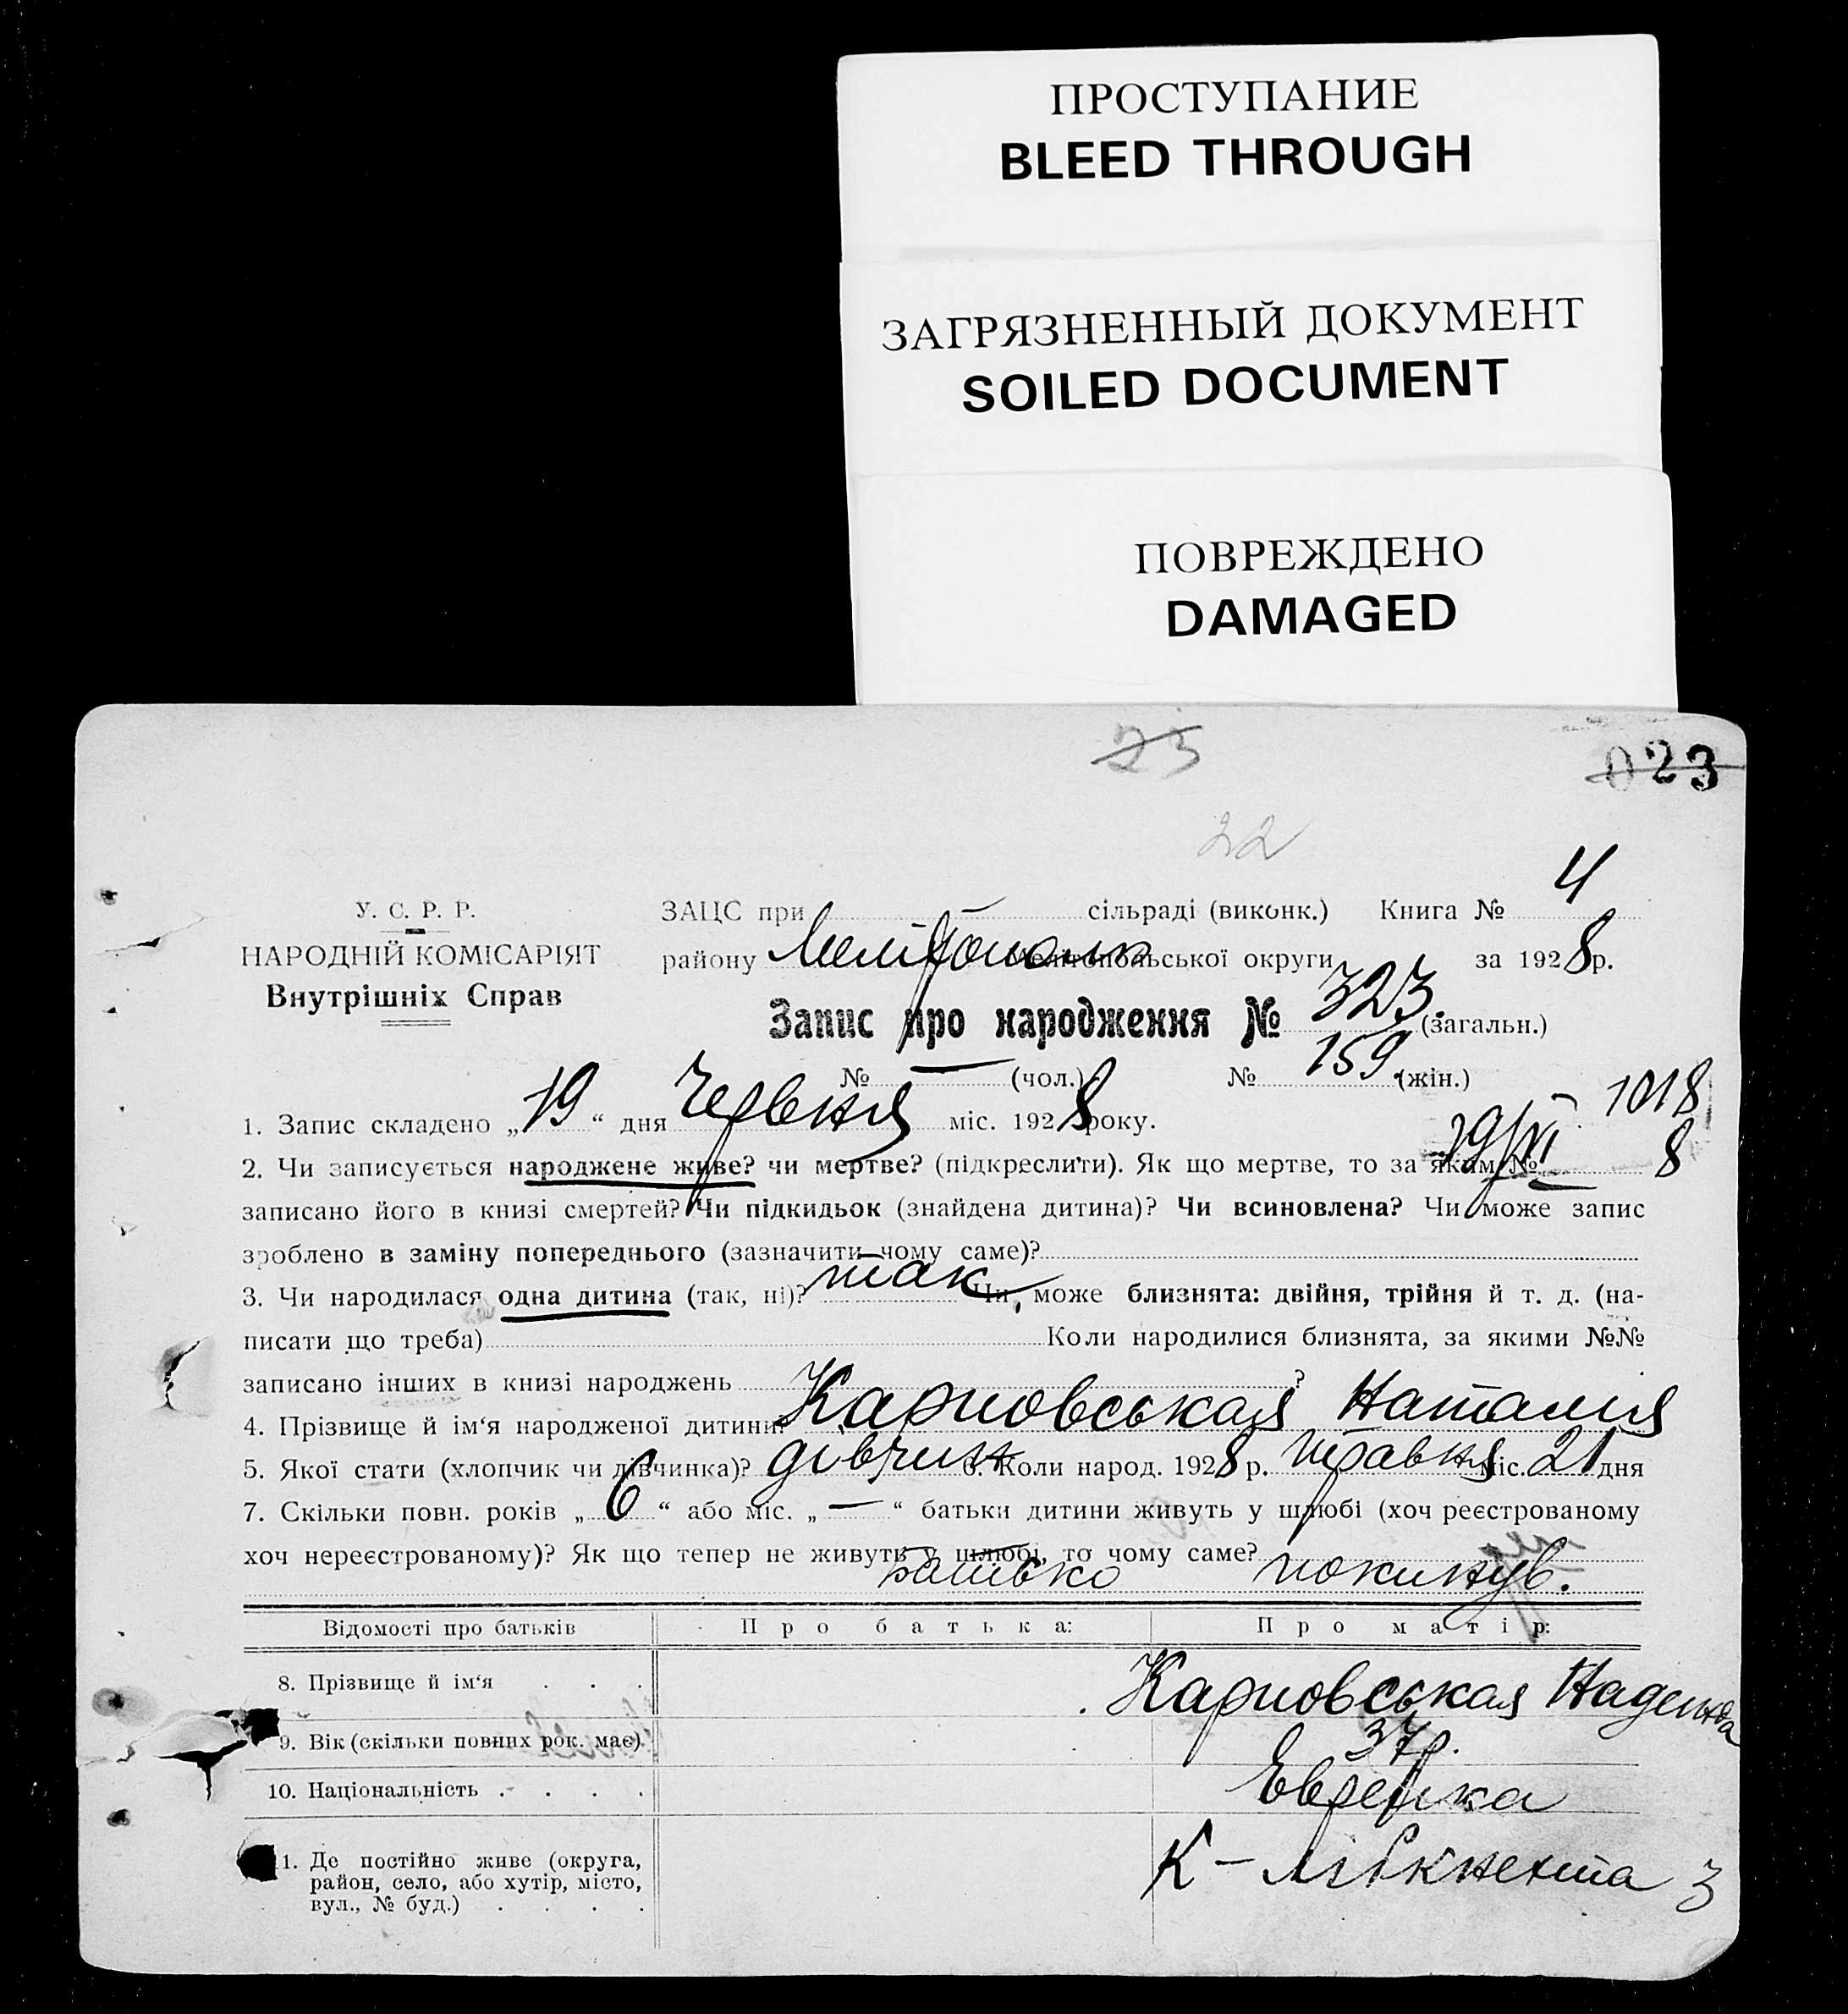 ПРОСТУПАНИЕ
BLEED THROUGH
ЗАГРЯЗНЕННЫЙ ДОКУМЕНТ
SOILED DOCUMENT
ПОВРЕЖДЕНО
DAMAGED
23
023
22
У. С. Р. Р.
НАРОДНІЙ КОМІСАРІЯТ
Внутрішніх Справ
ЗАЦС при — сільраді (виконк.) Книга № 4
району Мелітополь Мелітопольської округи за 1928 р.
Запис про народження № 323. (загальн.)
№ — (чол.) № 159. (жін.)
1018
1. Запис складено „19“ дня Червня міс. 1928 року.
19/VI 8
2. Чи записується народжене живе? чи мертве? (підкреслити). Як що мертве, то за яким №
записано його в книзі смертей? Чи підкидьок (знайдена дитина)? Чи всиновлена? Чи може запис
зроблено в заміну попереднього (зазначити чому саме)? —
3. Чи народилася одна дитина (так, ні)? так Чи може близнята: двійня, трійня й т. д. (на-
писати що треба) Коли народилися близнята, за якими №№
записано інших в книзі народжень ?
4. Прізвище й ім‘я народженої дитини? Карповськая Наталия
5. Якої стати (хлопчик чи дівчинка)? дівчин 6. Коли народ. 1928 р. травня міс. 21 дня
7. Скільки повн. років „6“ або міс. „—“ батьки дитини живуть у шлюбі (хоч реєстрованому
хоч нереєстрованому)? Як що тепер не живуть у шлюбі, то чому саме?
батько покинув.
Відомості про батьків Про батька: Про матір:
8. Прізвище й ім‘я . . . Карповськая Надежда
9. Вік (скільки повних рок. має) 37 р.
10. Національність . . . . Еврейка
11. Де постійно живе (округа,
район, село, або хутір, місто,
вул., № буд.) . . . .
К-Лібкнехта 3